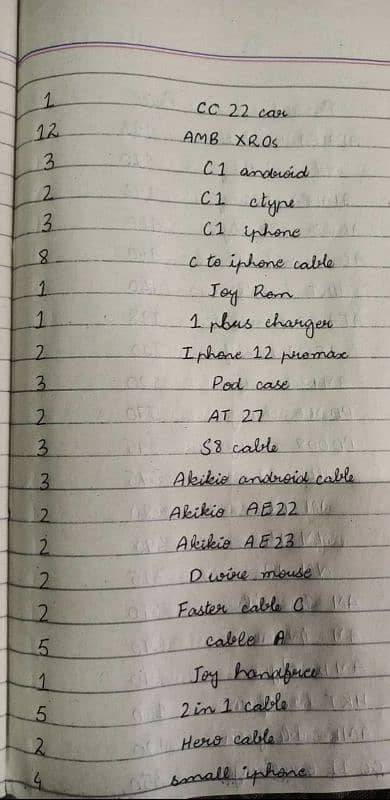 1 CC 22 car
12 AMB XROs
3 C1 android
2 C1 ctype
3 C1 iphone
8 c to iphone cable
1 Joy Rom
1 1 plus charger
2 Iphone 12 promax
3 Pod case
2 AT 27
3 S8 cable
3 Akikio android cable
2 Akikio AE22
2 Akikio AE23
2 D wire mouse
2 Faster cable C
5 cable A
1 Joy handfree
5 2 in 1 cable
2 Hero cable
4 small iphone